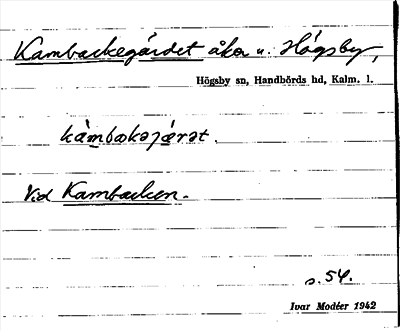 Kambackegärdet åker u. Högsby,
Högsby sn, Handbörds hd, Kalm. l.
kàmbakəjǽrət.
Vid Kambacken.
s. 54.
Ivar Modéer 1942